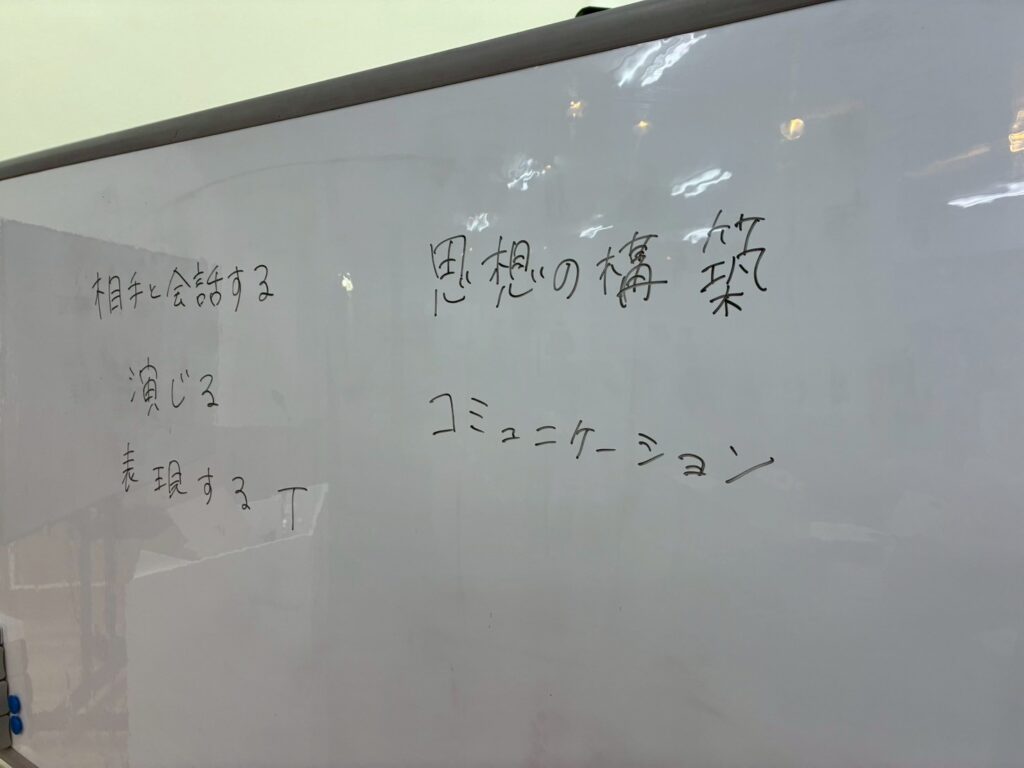 相手と会話する
演じる
表現する T
思想の構築
コミュニケーション